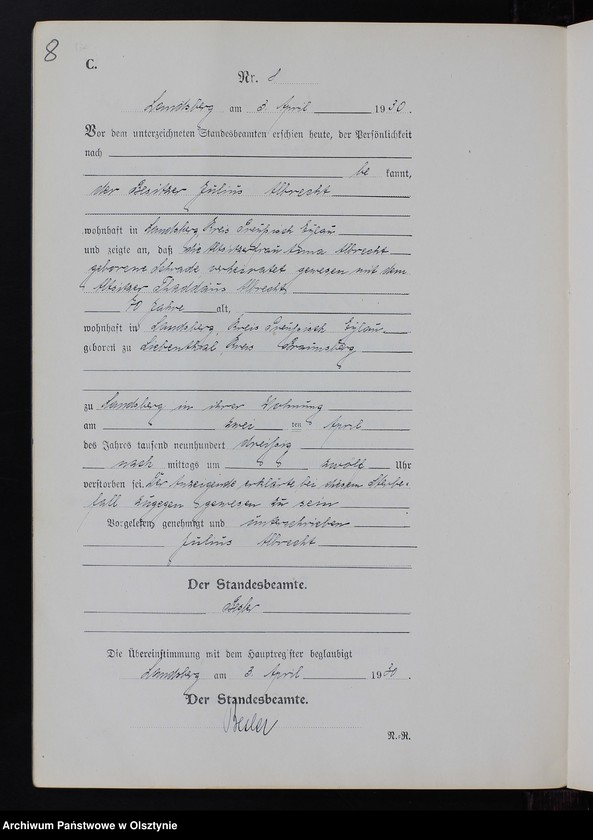 8
C.
Nr. 8
Landsberg am 3. April 1930.
Vor dem unterzeichneten Standesbeamten erschien heute, der Persönlichkeit
nach
be kannt,
der Besitzer Julius Albrecht
wohnhaft in Landsberg Kreis Preußisch Eylau
und zeigte an, daß die Altsitzerfrau Anna Albrecht
geborene Schrade verheiratet gewesen mit dem
Altsitzer Thaddäus Albrecht
70 Jahre alt,
wohnhaft in Landsberg, Kreis Preußisch Eylau
geboren zu Liebenthal Kreis Braunsberg
zu Landsberg in ihrer Wohnung
am zwei ten April
des Jahres tausend neunhundert dreißig
nach mittags um zwölf Uhr
verstorben sei. Der Anzeigende erklärte bei diesem Sterbe-
fall zugegen gewesen zu sein
Vorgelesen, genehmigt und unterschrieben
Julius Albrecht
Der Standesbeamte.
Die Übereinstimmung mit dem Hauptregister beglaubigt
Landsberg am 3. April 1930.
Der Standesbeamte.
N.-R.
Archiwum Państwowe w Olsztynie